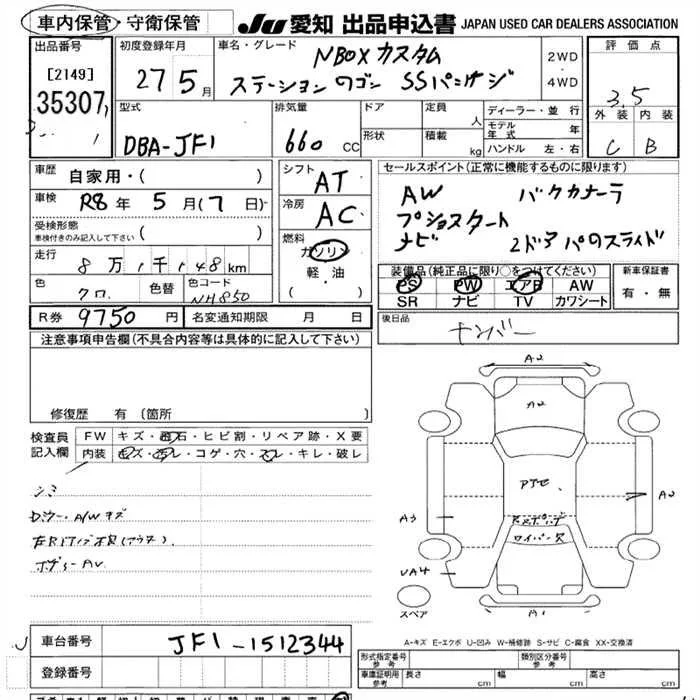 車内保管・守衛保管 JU 愛知 出品申込書 JAPAN USED CAR DEALERS ASSOCIATION
出品番号
[2149]
35307
初度登録年月
27 5月
車名・グレード
NBOXカスタム
ステーションワゴン SSパッケージ
2WD
・
4WD
評価点
3.5
外装 内装
C B
型式
DBA-JF1
排気量
660 CC
ドア
形状
定員 人
積載 kg
ディーラー・並行
モデル年式 年
ハンドル 左・右
車歴 自家用・( )
車検 R8年 5月(7日)
受検形態
車検付きのみ記入して下さい ( )
走行 8万1千148km
色 クロ 色替 色コード NH850
シフト AT
冷房 AC
燃料
ガソリン
・
軽・油
・
セールスポイント(正常に機能するものに限ります)
AW バックカメラ
プッシュスタート
ナビ 2ドアパワスライド
装備品(純正品に限り○をつけてください)
PS PW エアB AW
SR ナビ TV カワシート
新車保証書
有・無
R券 9750円 名変通知期限 月 日
後日品 ナンバー
注意事項申告欄(不具合内容等は具体的に記入して下さい)
修復歴 有 〔箇所 〕
検査員記入欄
FW キズ・飛石・ヒビ割・リペア跡・X要
内装 キズ・汚レ・コゲ・穴・スレ・キレ・破レ
シミ
AV
A2
A2
A3
UA4
A1
ワイパー
スペア
A-キズ E-エクボ U-凹み W-補修跡 S-サビ C-腐食 XX-交換済
車台番号 JF1-1512344
登録番号
形式指定番号
参考
類別区分番号
参考
車庫証明用
参考
長さ cm 幅 cm 高さ cm